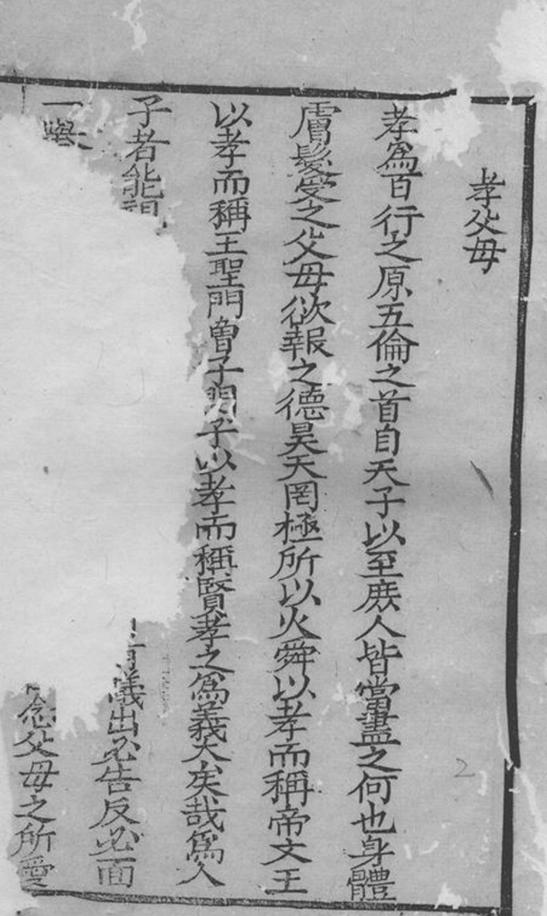 孝父母
孝為百行之原五倫之首自天子以至庶人皆當盡之何也身體
膚髮受之父母欲報之德昊天罔極所以大舜以孝而稱帝文王
以孝而稱王聖門曾子閔子以孝而稱賢孝之為義大矣哉為人
子者能 儀出必告反必面
一舉 念父母之所愛
2